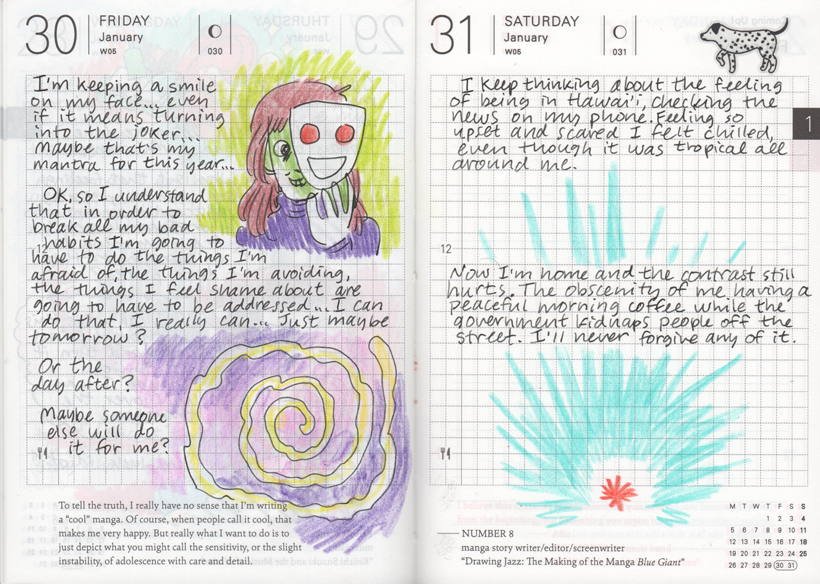 30 FRIDAY
January
W05
030
I'm keeping a smile
on my face... even
if it means turning
into the joker...
Maybe that's my
mantra for this year...
OK, so I understand
that in order to
break all my bad
habits I'm going to
have to do the things I'm
afraid of, the things I'm avoiding,
the things I feel shame about are
going to have to be addressed... I can
do that, I really can... Just maybe
tomorrow?
Or the
day after?
Maybe someone
else will do
it for me?
To tell the truth, I really have no sense that I'm writing
a "cool" manga. Of course, when people call it cool, that
makes me very happy. But really what I want to do is to
just depict what you might call the sensitivity, or the slight
instability, of adolescence with care and detail.
31 SATURDAY
January
W05
031
1
I keep thinking about the feeling
of being in Hawai'i, checking the
news on my phone. Feeling so
upset and scared I felt chilled,
even though it was tropical all
around me.
12
Now I'm home and the contrast still
hurts. The obscenity of me having a
peaceful morning coffee while the
government kidnaps people off the
street. I'll never forgive any of it.
NUMBER 8
manga story writer/editor/screenwriter
"Drawing Jazz: The Making of the Manga Blue Giant"
M T W T F S S
1 2 3 4
5 6 7 8 9 10 11
12 13 14 15 16 17 18
19 20 21 22 23 24 25
26 27 28 29 30 31